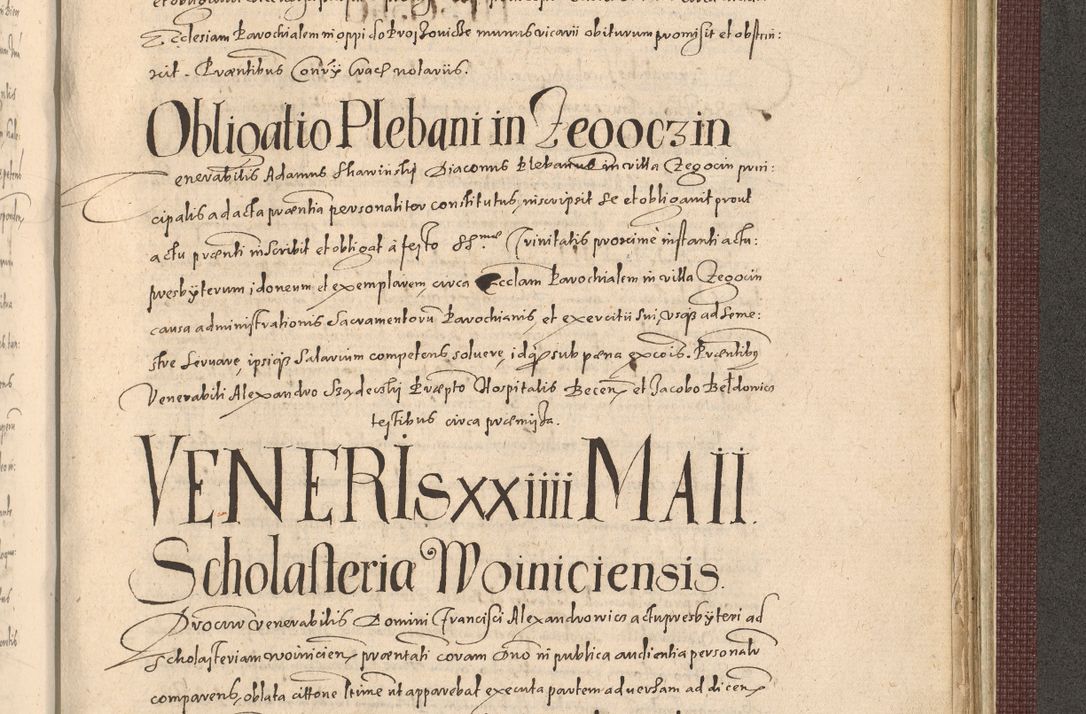 Ecclesiam Parochialem in oppido Proszovicze munus vicarii obiturum promisit et obstrin:
xit. Præntibus Conrÿ Crac notariis.
Obligatio Plebani in Zegoczin
enerabilis Adamus Skawinskÿ Diaconus Plebanus in villa Czegocin prin:
cipalis ad acta præntia personaliter constitutus, inscripsit se et obligavit prout
actu prænti inscribit et obligat à festo SS.mæ Trinitatis proxime instanti actu:
presbÿterum idoneum et exemplarem circa Ecclam Parochialem in villa Czegocin
causa administrationis Sacramentorũ Parochianis, et exercitii sui, usq; ad seme:
stre servare, ipsiq; Salarium competens solvere, idq; sub pæna excõis. Præntibus
Venerabili Alexandro Szadeczkÿ Præpto Hospitalis Becen, et Jacobo Beldowicz
testibus circa præmissa.
VENERIS XXIIII MAII.
Scholasteria Woiniciensis.
Procur venerabilis Domini Francisci Alexandrowicz actu presbÿteri ad
Scholasteriam woinicien, præntati coram Dno in publica audientia personalr
comparens, oblata cittone ltime ut apparebat executa partem adversam ad dicen